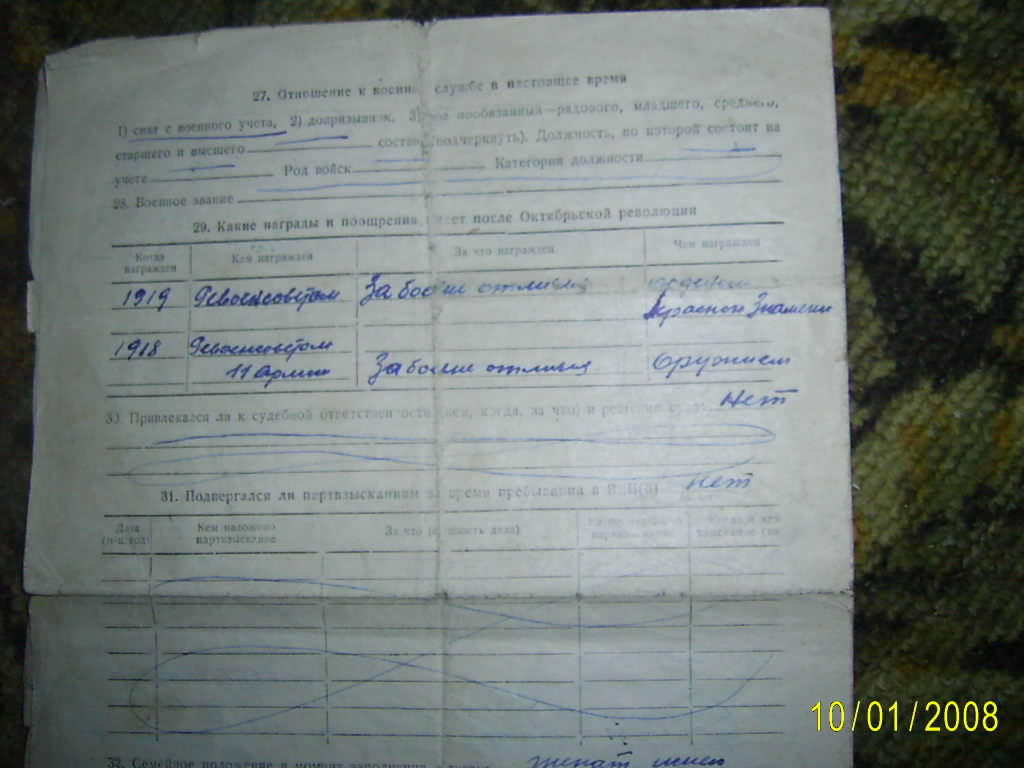 27. Отношение к военной службе в настоящее время
1) снят с военного учета, 2) допризывник, 3) военнообязанный—рядового, младшего, среднего,
старшего и высшего состава (подчеркнуть). Должность, по которой состоит на
учете Род войск Категория должности
28. Военное звание
29. Какие награды и поощрения имеет после Октябрьской революции
Когда награжден Кем награжден За что награжден Чем награжден
1919 Реввоенсоветом За боевые отличия орденом
Красного Знамени
1918 Реввоенсоветом
11 Армии За боевые отличия Оружием
30. Привлекался ли к судебной ответственности (кем, когда, за что) и решение суда Нет
31. Подвергался ли партвзысканиям за время пребывания в ВКП(б) Нет
Дата Кем наложено партвзыскание За что (сущность дела)
32. Семейное положение в момент заполнения женат
10/01/2008